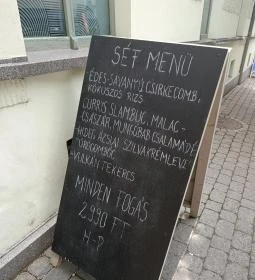 SÉF MENÜ
ÉDES-SAVANYÚ CSIRKECOMB,
KÓKUSZOS RIZS
CURRIS SLAMBUC, MALAC-
CSÁSZÁR, MUNGÓBAB CSALAMÁDÉ
HIDEG ÁZSIAI SZILVAKRÉMLEVES
TÚRÓGOMBÓC
VULKÁNTEKERCS
MINDEN FOGÁS
2.990 FT
H-P